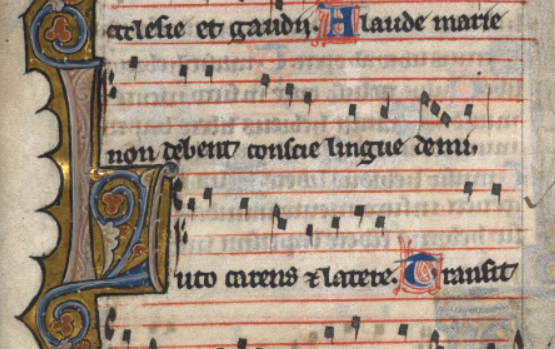 ecclesie et gaudii. A laude marie
non debent conscie lingue demi.
Luto carens & latere. Transit